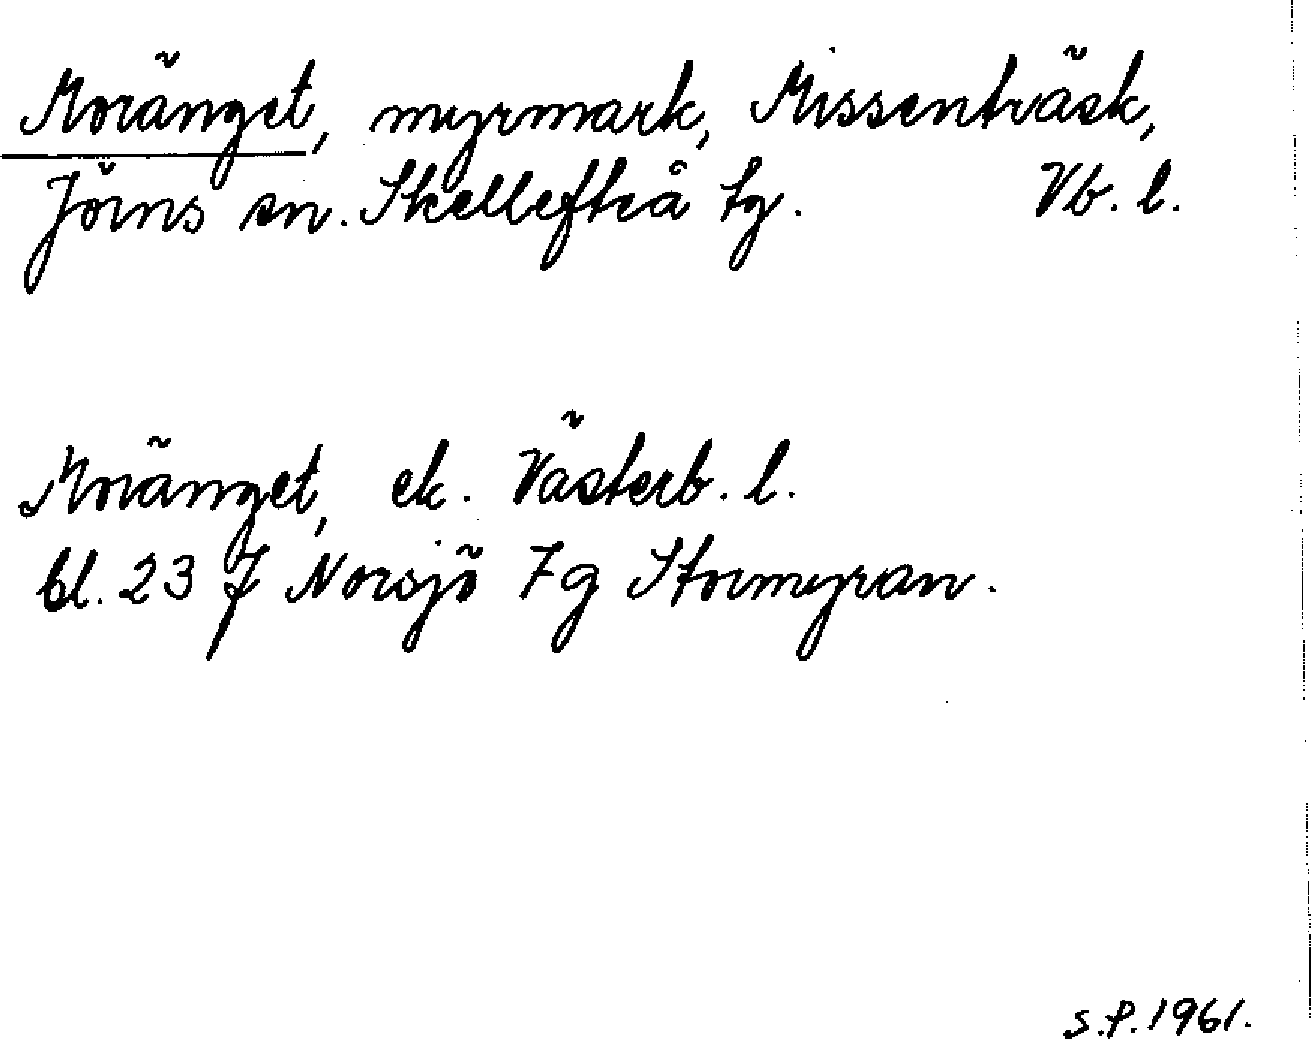 Moränget, myrmark, Missenträsk,
Jörns sn. Skellefteå tg. Vb. l.
Moränget, ek. Västerb. l.
bl. 23 J Norsjö 7g Stormyran.
S.P. 1961.